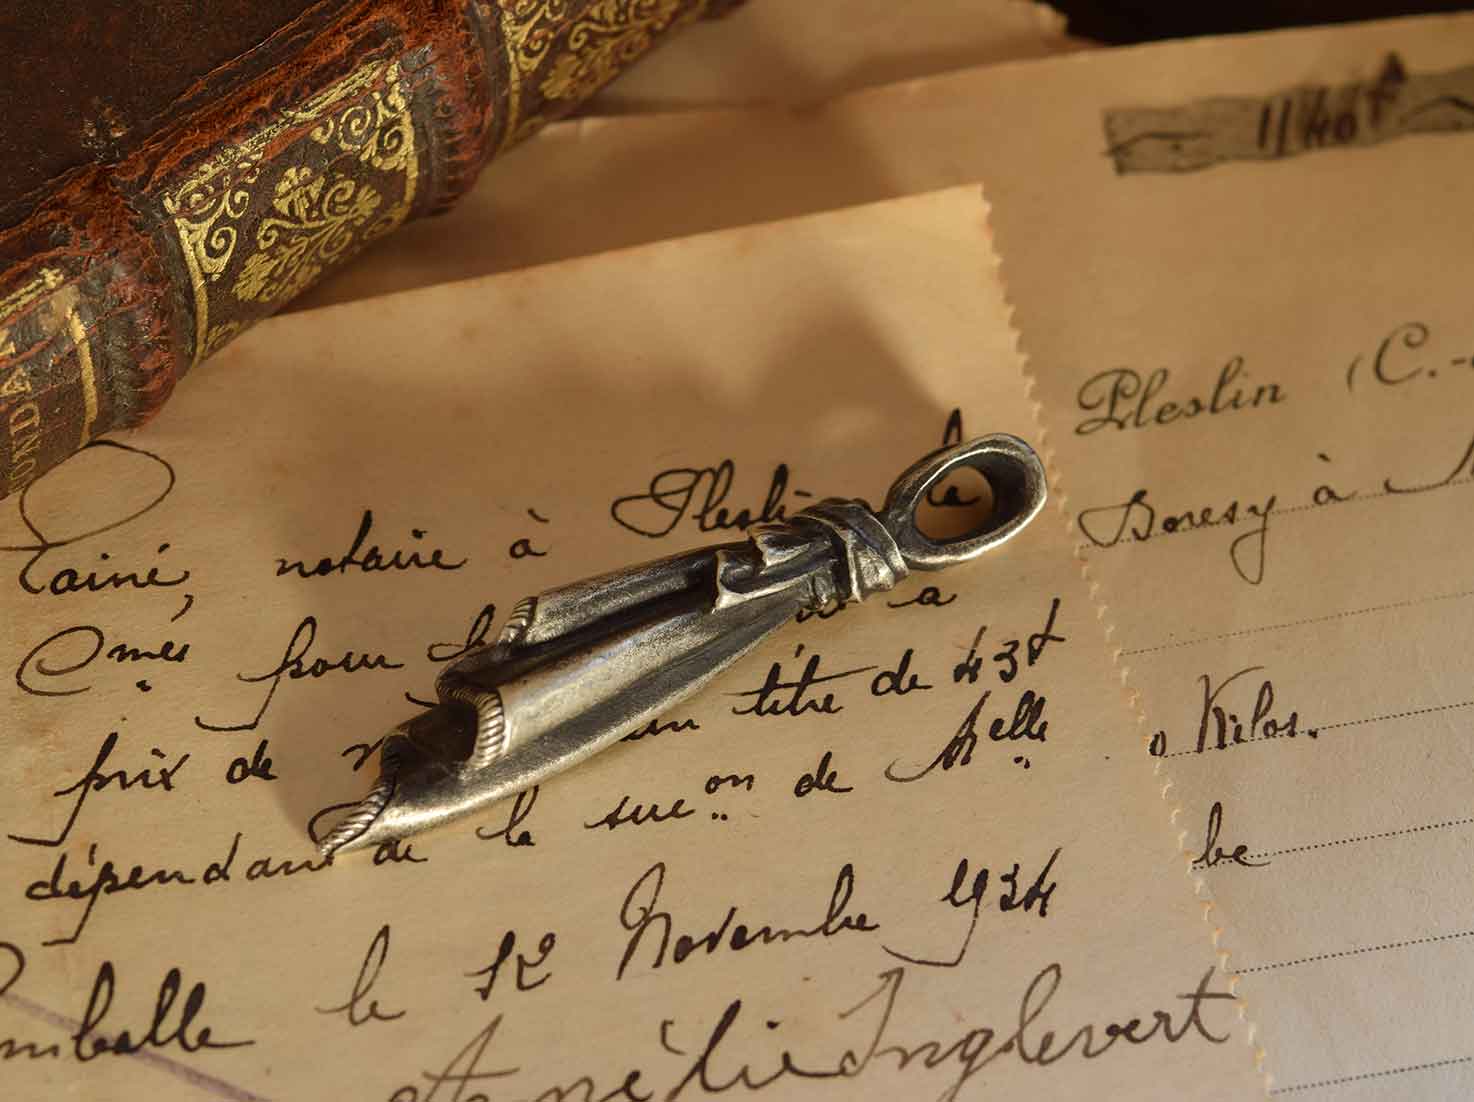 OND A
1140 f
Pleslin (C.-
Boresy à
lainé, notaire à Pleslin la
Cmes pour a
prix de un titre de 43 f
dépendant de la sucon de Melle
mballe le 12 Novembre 1934
Amélie Inglevert
o Kilos.
be